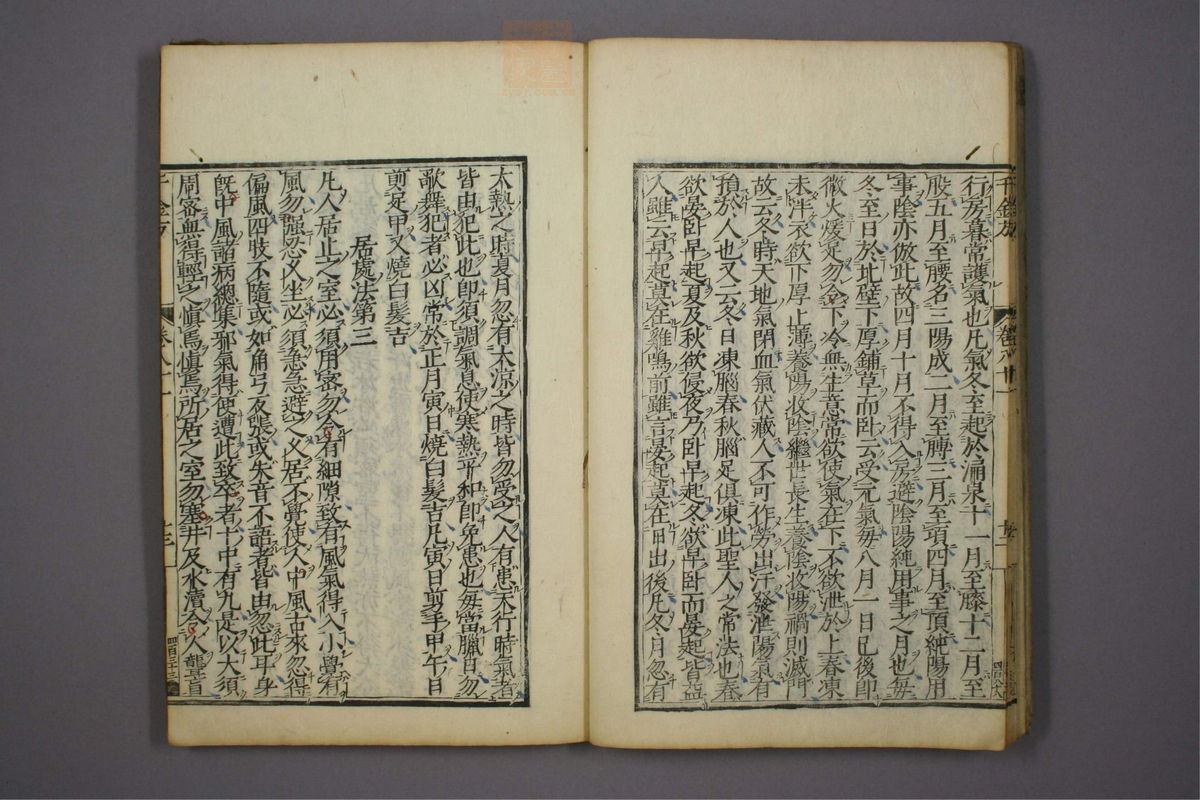 千金方
卷八十一
十二
行房暮常護氣也凡氣冬至起於涌泉十一月至膝十二月至
股五月至腰名三陽成二月至膊三月至項四月至頂純陽用
事陰亦倣此故四月十月不得入房避陰陽純用事之月也每
冬至日於北壁下厚鋪草而卧云受元氣每八月一日已後即
微火煖足勿令下冷無生意常欲使氣在下不欲泄於上春凍
未泮衣欲下厚上薄養陽收陰繼世長生養陰收陽禍則滅門
故云冬時天地氣閉血氣伏藏人不可作勞出汗發泄陽氣有
損於人也又云冬日凍腦春秋腦足俱凍此聖人之常法也春
欲晏卧早起夏及秋欲侵夜乃卧早起冬欲早卧而晏起皆益
人雖云早起莫在雞鳴前雖言晏起莫在日出後凡冬月忽有
大熱之時夏月忽有大凉之時皆勿受之人有患天行時氣者
皆由犯此也即須調氣息使寒熱平和即免患也每當臘日勿
歌舞犯者必凶常於正月寅日燒白髮吉凡寅日剪手甲午日
剪足甲又燒白髮吉
居處法第三
凡人居止之室必須周密勿令有細隙致有風氣得入小覺有
風勿強忍久坐必須急急避之久居不覺使人中風古來忽得
偏風四肢不隨或如角弓反張或失音不語者皆由忽此耳身
旣中風諸病總集邪氣得便遭此致卒者十中有九是以大須
周密無得輕之愼焉愼焉所居之室勿塞井及水瀆令人聾盲
千金方
卷八十一
十三
四百三十三